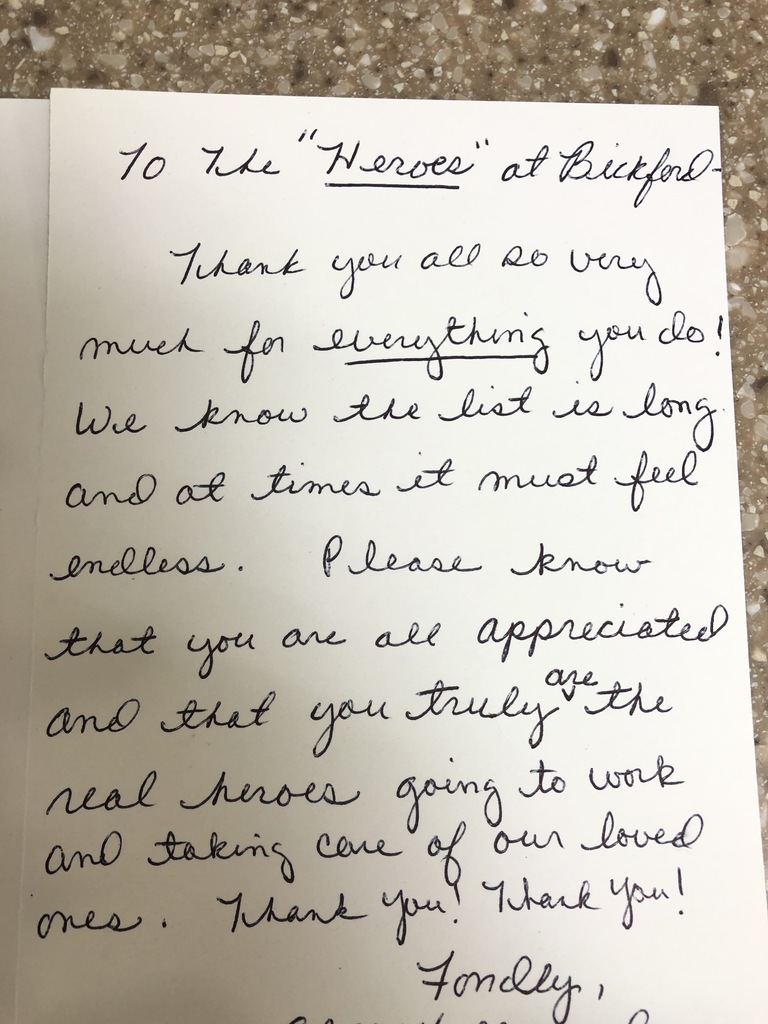 To The "Heroes" at Bickford-
Thank you all so very
much for everything you do!
We know the list is long
and at times it must feel
endless. Please know
that you are all appreciated
and that you truly are the
real heroes going to work
and taking care of our loved
ones. Thank you! Thank you!
Fondly,